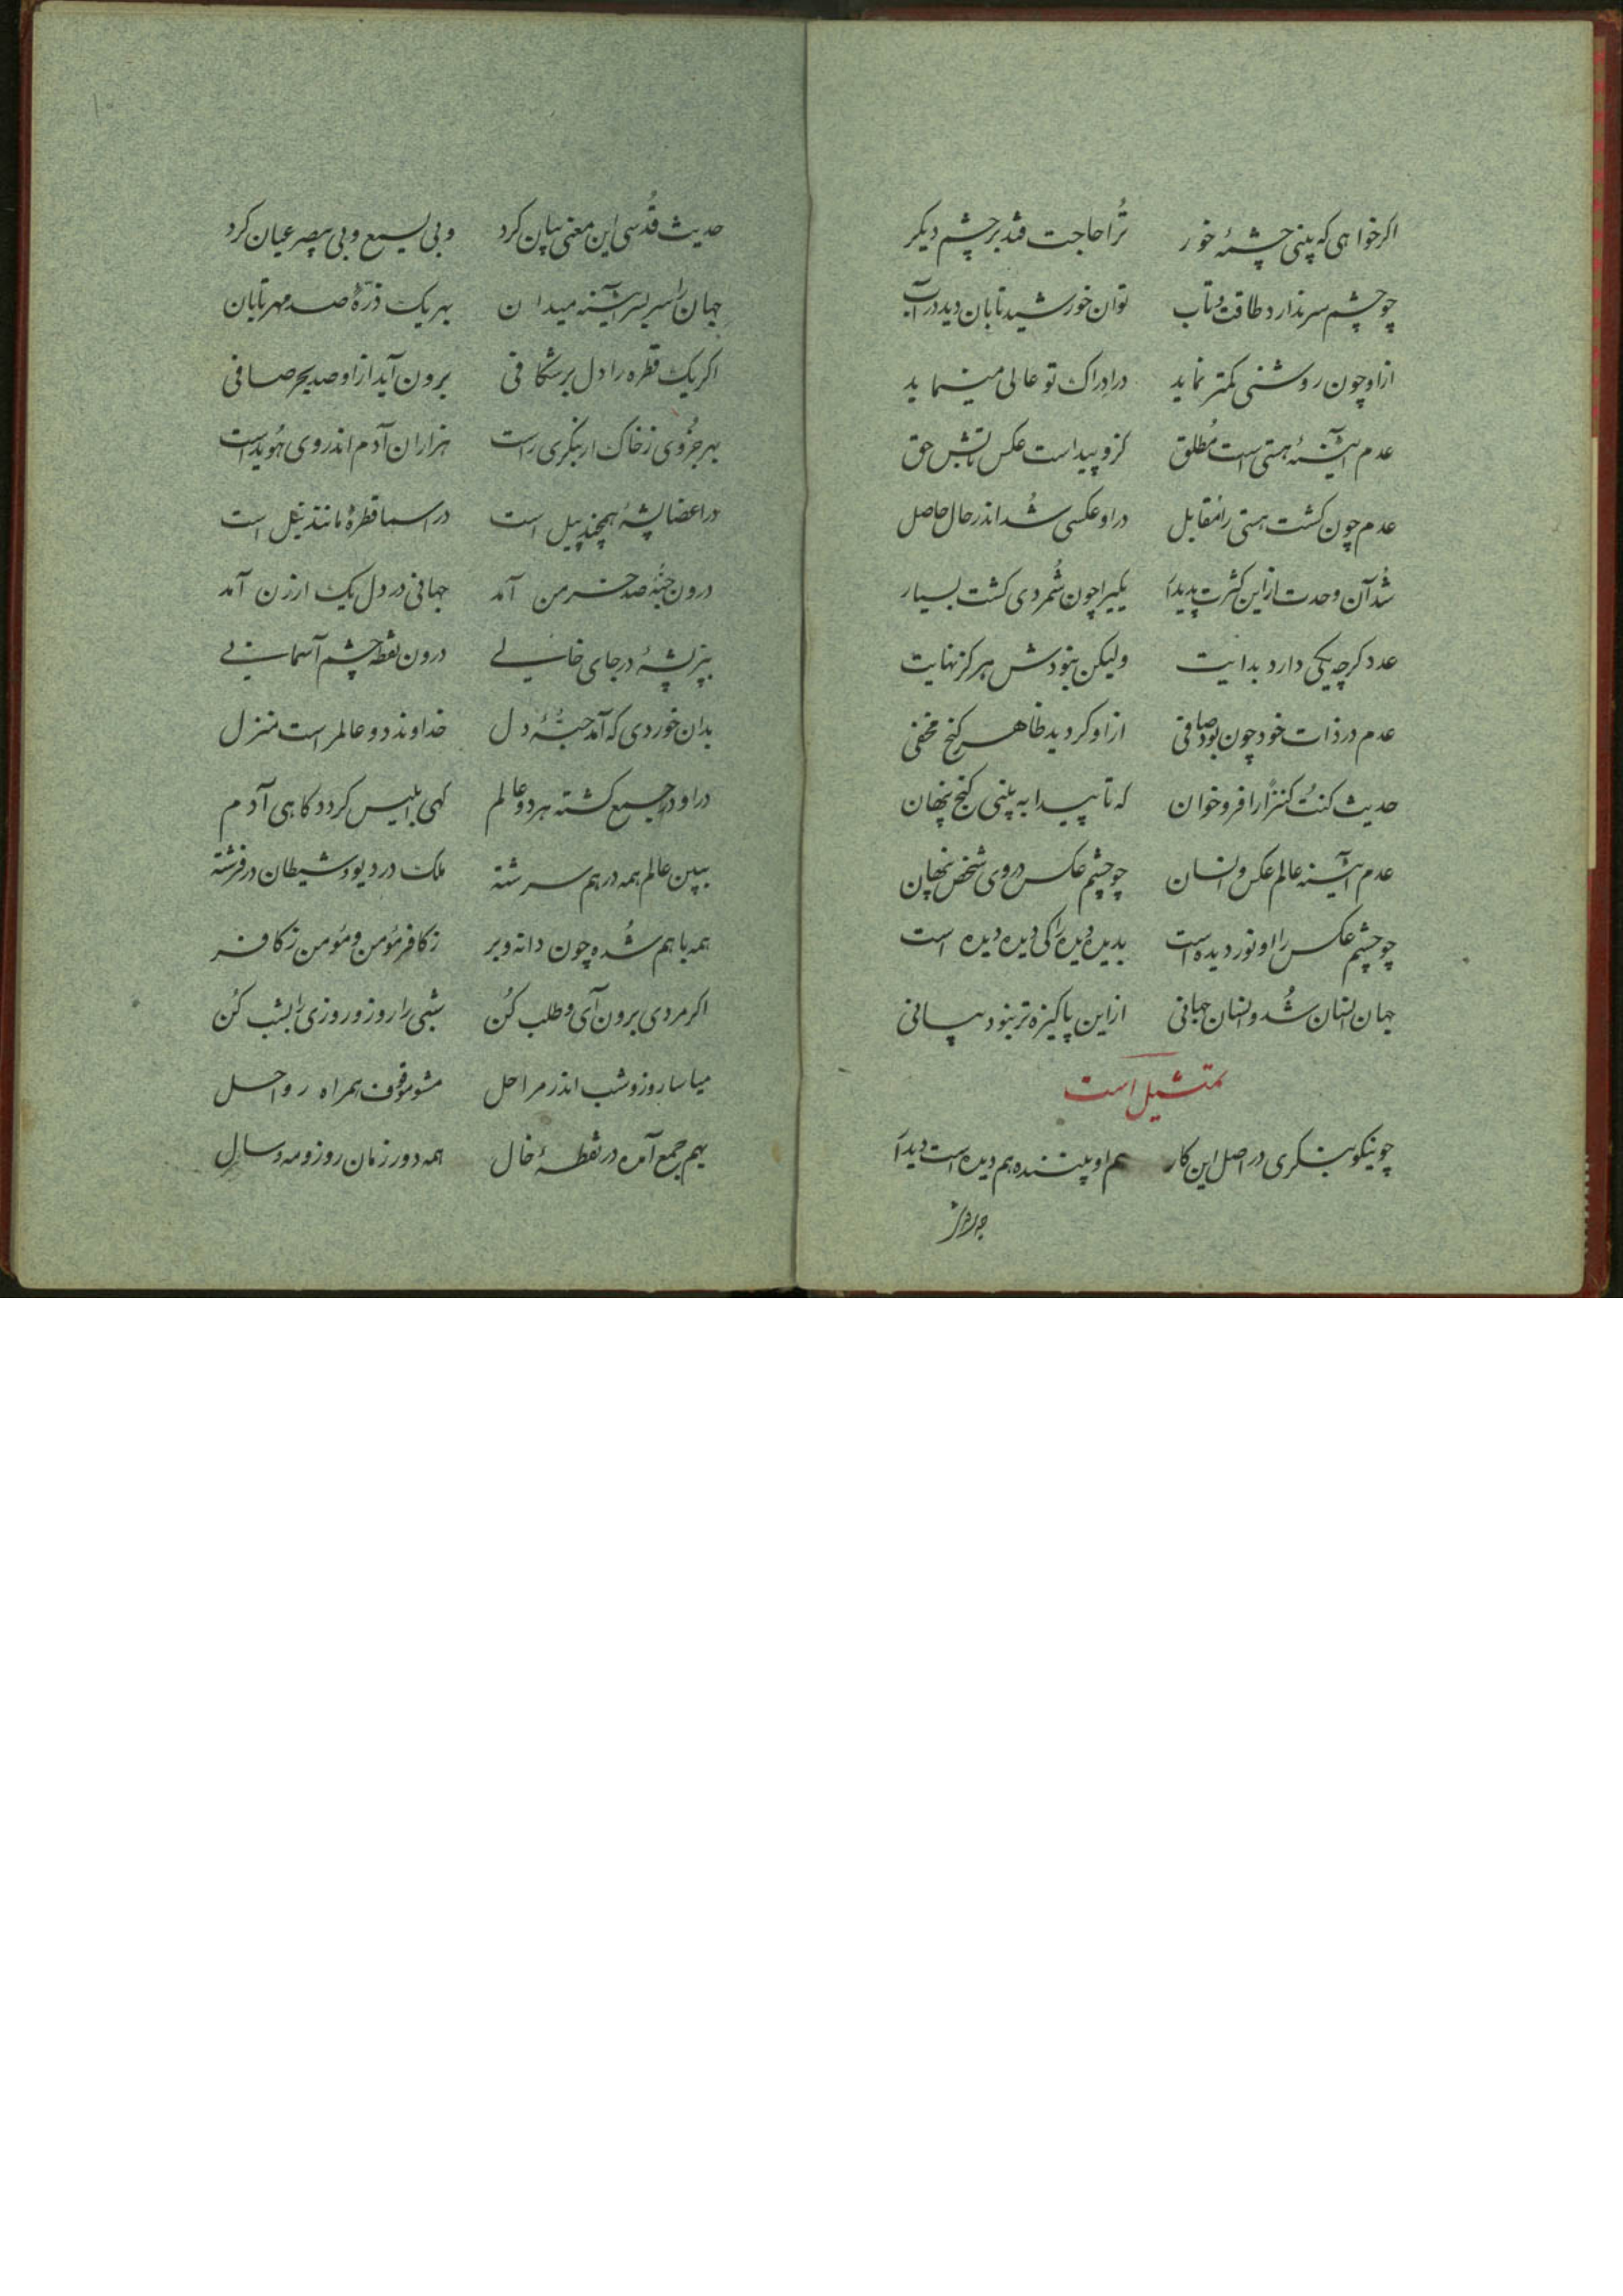 اگر خواهی که بینی چشمهٔ خور ترا حاجت فتد بر چشم دیگر
چو چشم سر ندارد طاقت و تاب توان خورشید تابان دید در آب
از او چون روشنی کمتر نماید در ادراک تو عالی مینماید
عدم آیینهٔ هستی است مُطلق کزو پیداست عکس تابش حق
عدم چون گشت هستی را مُقابل در او عکسی شُد اندر حال حاصل
شُد آن وحدت از این کثرت پدیدار یکی را چون شُمردی گشت بسیار
عدد گرچه یکی دارد بدایت ولیکن نبودش هرگز نهایت
عدم در ذات خود چون بود صافی از او گردید ظاهر گنج مخفی
حدیث کنتُ کنزاً را فرو خوان که تا پیدا به بینی گنج پنهان
عدم آیینه عالم عکس و انسان چو چشم عکس در وی شخص پنهان
چو چشم عکس را او نور دیده است بدیده دیدهٔ را کی دیده دیده است
جهان انسان شُد و انسان جهانی از این پاکیزه‌تر نبود بیانی
تمثیل است
چو نیکو بنگری در اصل این کار هم او بیننده هم دیده است دیدار
حدیث قُدسی این معنی بیان کرد و بی یسمع و بی یبصر عیان کرد
جهان را سر بسر آیینه میدان بهر یک ذرّهٔ صد مهر تابان
اگر یک قطره را دل برشکافی برون آید از او صد بحر صافی
بهر جزوی ز خاک ار بنگری راست هزاران آدم اندر وی هُویداست
در اعضا پشهٔ همچند پیل است در اسما قطرهٔ مانند نیل است
درون حبّهٔ صد خرمن آمد جهانی در دل یک ارزن آمد
بپر پشهٔ در جای خالی درون نقطه چشم آسمانی
بدان خوردی که آمد حبّهٔ دل خداوند دو عالم راست منزل
در او در جمع گشته هر دو عالم گهی ابلیس گردد گاهی آدم
ببین عالم همه در هم سرشته ملک در دیو و شیطان در فرشته
همه با هم شُده چون دانه و بر ز کافر مؤمن و مؤمن ز کافر
اگر مردی برون آی و طلب کُن شبی را روز و روزی را بشب کُن
میاسا روز و شب اندر مراحل مشو موقوف همراه رواحل
بهم جمع آمده در نقطهٔ خال همه دور زمان روز و مه و سال